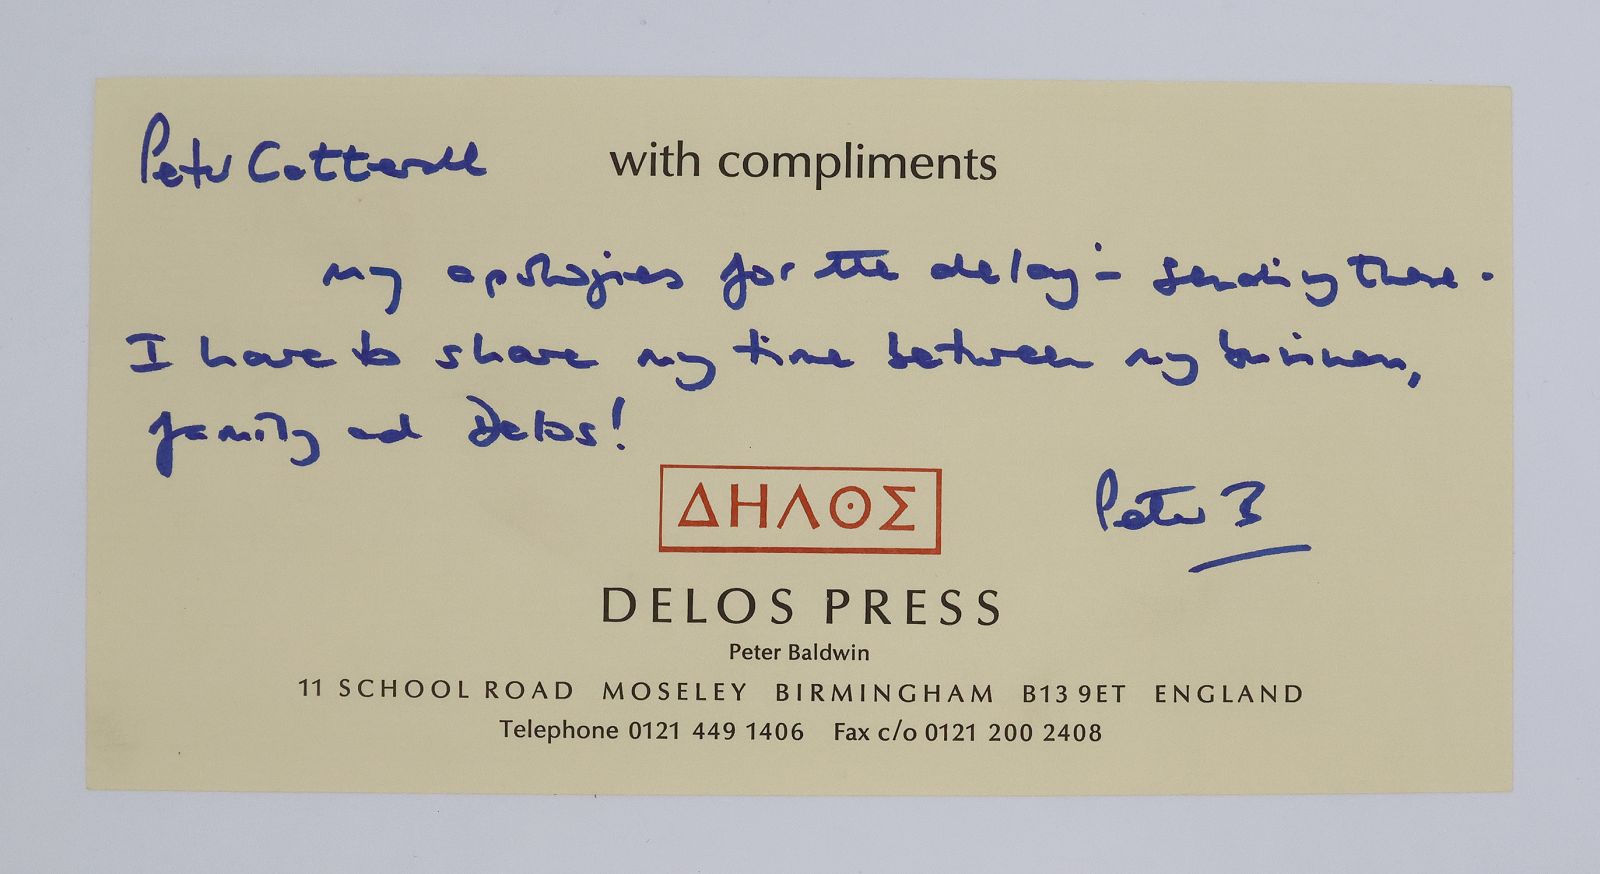 Peter Cotterell with compliments
my apologies for the delay in sending these.
I have to share my time between my business,
family and Delos!
ΔΗΛΟΣ
Peter B
DELOS PRESS
Peter Baldwin
11 SCHOOL ROAD MOSELEY BIRMINGHAM B13 9ET ENGLAND
Telephone 0121 449 1406 Fax c/o 0121 200 2408